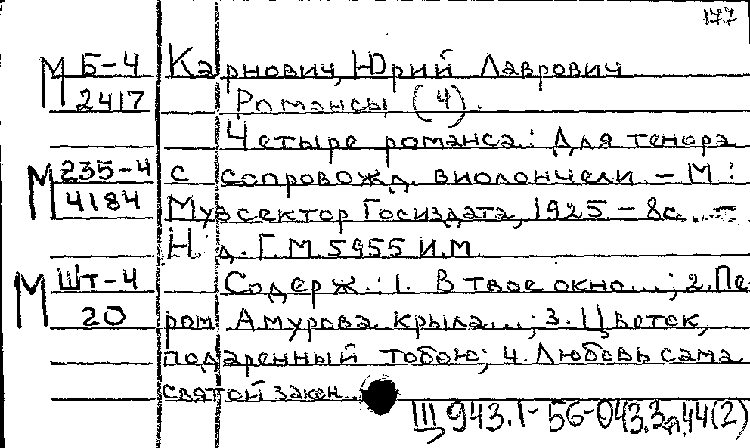 177
М Б-4 Карнович, Юрий Лаврович
2417 Романсы (4).
Четыре романса: Для тенора
М 235-4 с сопровожд. виолончели. - М:
4184 Музсектор Госиздата, 1925 - 8с. -
Н.д. Г.М. 5955 И.М
М Шт-4 Содерж.: 1. В твое окно...; 2. Пе
20 ром Амурова крыла...; 3. Цветок,
подаренный тобою; 4. Любовь сама
святой закон...
Щ 943.1-56-043.3я44(2)